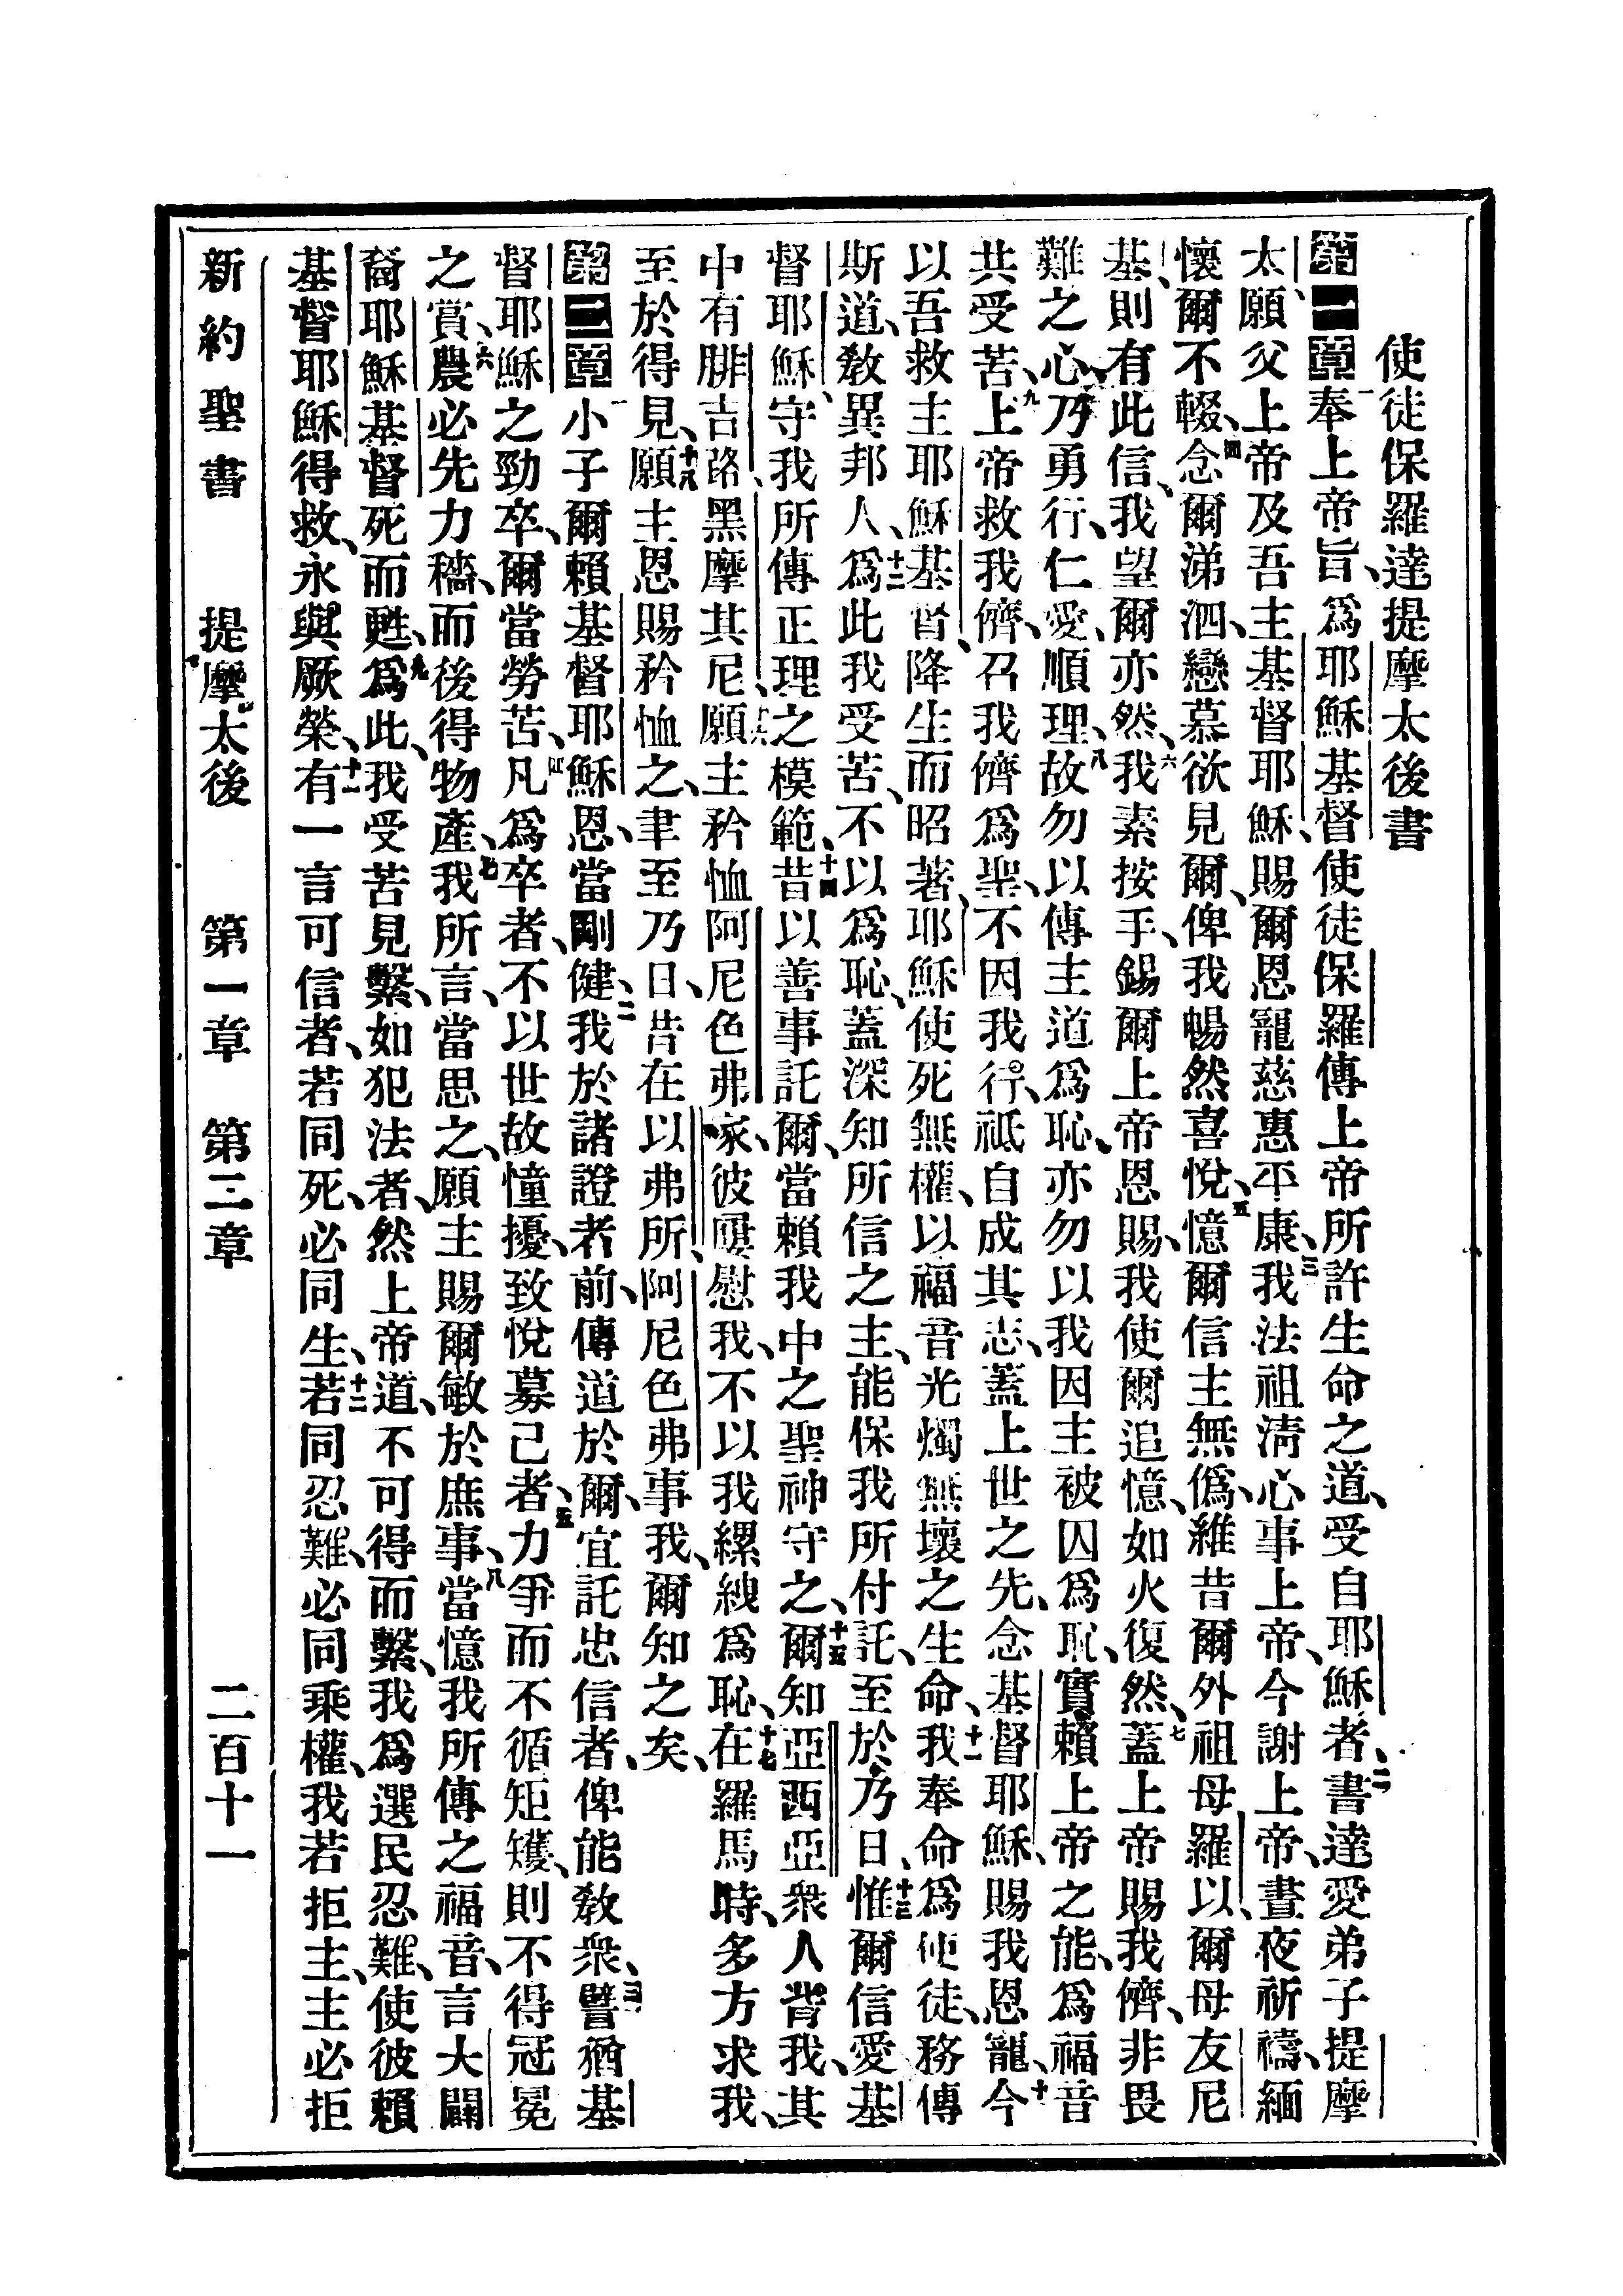 使徒保羅達提摩太後書
第一章一奉上帝旨、爲耶穌基督使徒保羅傳上帝所許生命之道、受自耶穌者、二書達愛弟子提摩
太、願父上帝及吾主基督耶穌、賜爾恩寵慈惠平康、三我法祖淸心事上帝、今謝上帝、晝夜祈禱、緬
懷爾不輟、四念爾涕泗、戀慕欲見爾、俾我暢然喜悅、五憶爾信主無僞、維昔爾外祖母羅以、爾母友尼
基、則有此信、我望爾亦然、六我素按手、錫爾上帝恩賜、我使爾追憶、如火復然、七蓋上帝賜我儕、非畏
難之心、乃勇行、仁愛、順理、八故勿以傳主道爲恥、亦勿以我因主被囚爲恥、實賴上帝之能、爲福音
共受苦、九上帝救我儕、召我儕爲聖、不因我行、祇自成其志、蓋上世之先、念基督耶穌、賜我恩寵、十今
以吾救主耶穌基督、降生而昭著、耶穌使死無權、以福音光燭無壞之生命、十一我奉命爲使徒、務傳
斯道、教異邦人、十二爲此我受苦、不以爲恥、蓋深知所信之主、能保我所付託、至於乃日、十三惟爾信愛基
督耶穌、守我所傳正理之模範、十四昔以善事託爾、當賴我中之聖神守之、十五爾知亞西亞衆人背我、其
中有腓吉路黑摩其尼、十六願主矜恤阿尼色弗家、彼屢慰我、不以我縲絏爲恥、十七在羅馬時、多方求我、
至於得見、十八願主恩賜矜恤之、聿至乃日、昔在以弗所、阿尼色弗事我、爾知之矣、
第二章一小子爾賴基督耶穌恩、當剛健、二我於諸證者前、傳道於爾、宜託忠信者、俾能敎衆、三譬猶基
督耶穌之勁卒、爾當勞苦、四凡爲卒者、不以世故憧擾、致悅募己者、五力爭而不循矩矱、則不得冠冕
之賞、六農必先力穡、而後得物產、七我所言、當思之、願主賜爾敏於庶事、八當憶我所傳之福音、言大闢
裔耶穌基督死而甦、九爲此、我受苦見繫、如犯法者、然上帝道、不可得而繫、我爲選民忍難、使彼賴
基督耶穌得救、永與厥榮、十一有一言可信者、若同死、必同生、十二若同忍難、必同乘權、我若拒主、主必拒
新約聖書 提摩太後 第一章 第二章 二百十一